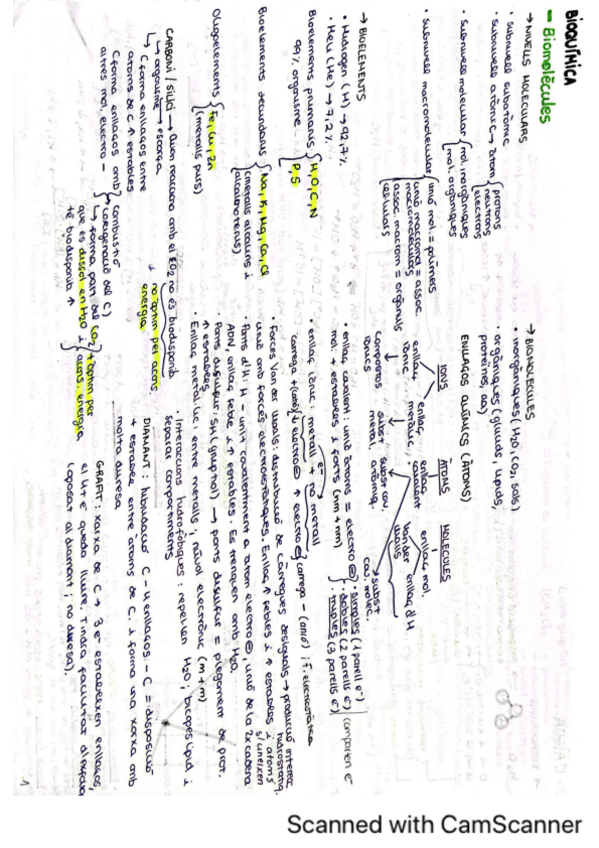 BIOQUÍMICA
- Biomolècules
→ NIVELLS MOLECULARS
• subnivell subatòmic
• subnivell atòmic → àtom { protons
neutrons
electrons
• subnivell molecular { mol. inorgàniques
mol. orgàniques
• subnivell macromolecular { unió mol. = polímers
unió macromol = assoc.
macromolecular
assoc. macrom = orgànuls
cel·lulars
→ BIOMOLÈCULES
• inorgàniques (H2O, CO2, sals)
• orgàniques (glúcids, lípids,
proteïnes, aa)
ENLLAÇOS QUÍMICS (ÀTOMS)
IONS
ÀTOMS
MOLÈCULES
enllaç
iònic
enllaç
metàl·lic
enllaç
covalent
enllaç mol.
Vander
Walls
enllaç d'H
compostos
iònics
subst
metal.
subst cov.
atòmiq.
subst
cov. molec.
→ BIOELEMENTS
• Hidrogen (H) → 92,7%
• Heli (He) → 7,2%
Bioelements primaris { H, O, C, N
99% organisme { P, S
Bioelements secundaris { Na, K, Mg, Ca, Cl
(metalls alcalins i
alcalinoterris)
Oligoelements { Fe, Cu, Zn
(metalls purs)
• enllaç covalent: unió àtoms = electro ⊖
mol + estables i forts (nm + nm)
• simples (1 parell e-)
• dobles (2 parells e-)
• triples (3 parells e-)
comparen e-
• enllaç iònic: metall + no metall
càrrega + (catió) ↓ electro ⊖ ↑ electro ⊖ càrrega - (anió); F. electrostàtica
• Forces Van der Waals: distribució de càrregues desiguals → producció interacc
unió amb forces electrostàtiques. Enllaç ↑ febles i ↑ estables i àtoms
s'uneixen
• Ponts d'H: H - unit covalentment a àtom electro ⊖, unió de la 2x cadena
ADN, enllaç feble i ↑ estables. Es trenquen amb H2O.
• Ponts disulfur: SH (grup tiol) → ponts disulfur = plegament de prot.
↑ estables
• Enllaç metàl·lic: entre metalls, núvol electrònic (m + m)
Interaccions hidrofòbiques: repel·len H2O; bicapes lipíd. i
separar compartiments
CARBONI / SILICI → Quan reacciona amb el O2 no és biodisponib
↳ organisme ↳ escorça
no òptim per acons.
energia
↳ C forma enllaços entre
àtoms de C ↑ estables
C forma enllaços amb
altres mol. electro -
combustió
(oxigenació del C)
↳ forma part del CO2 + òptim per
que es dissol en H2O i acons. energia
té biodisponib ↑
DIAMANT: hibridació C - 4 enllaços - C = disposició
+ estable entre àtoms de C. i forma una xarxa amb
molta duresa
GRAFIT: xarxa de C → 3 e- estableixen enllaços,
el 4t e- queda lliure.
(oposat al diamant; no duresa).
1
Scanned with CamScanner